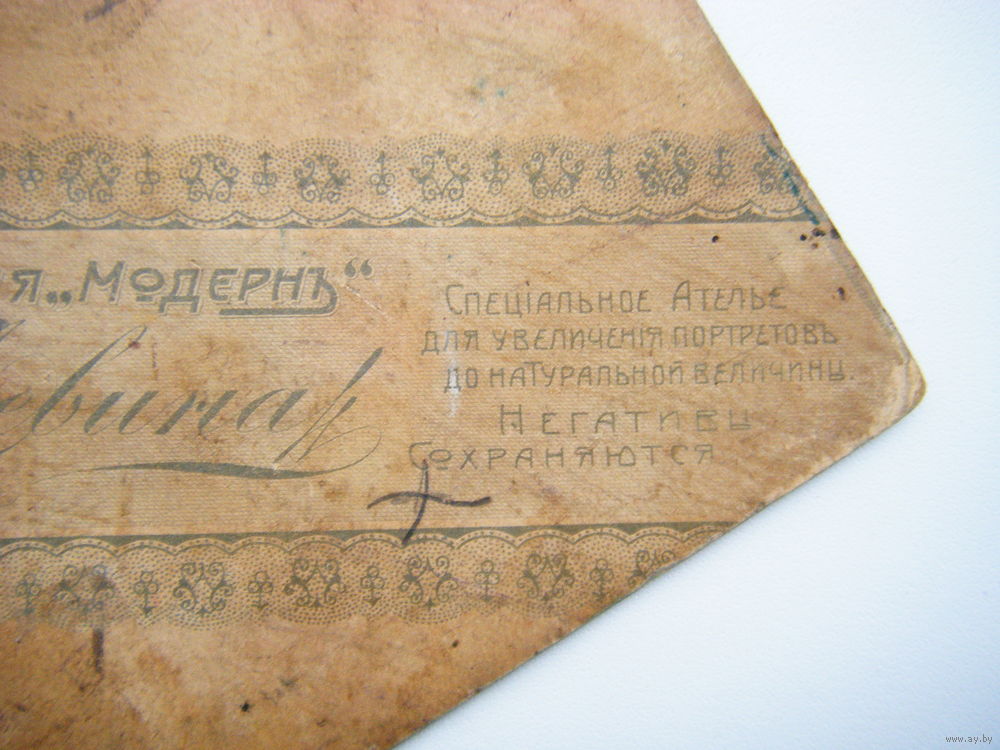 „Модернъ“
Спеціальное Ателье
для увеличенія портретовъ
до натуральной величины.
Негативы
Сохраняются
www.ay.by